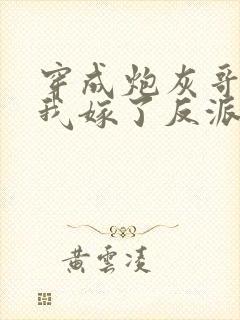 穿成炮灰哥
我嫁了反派
黄雲凌